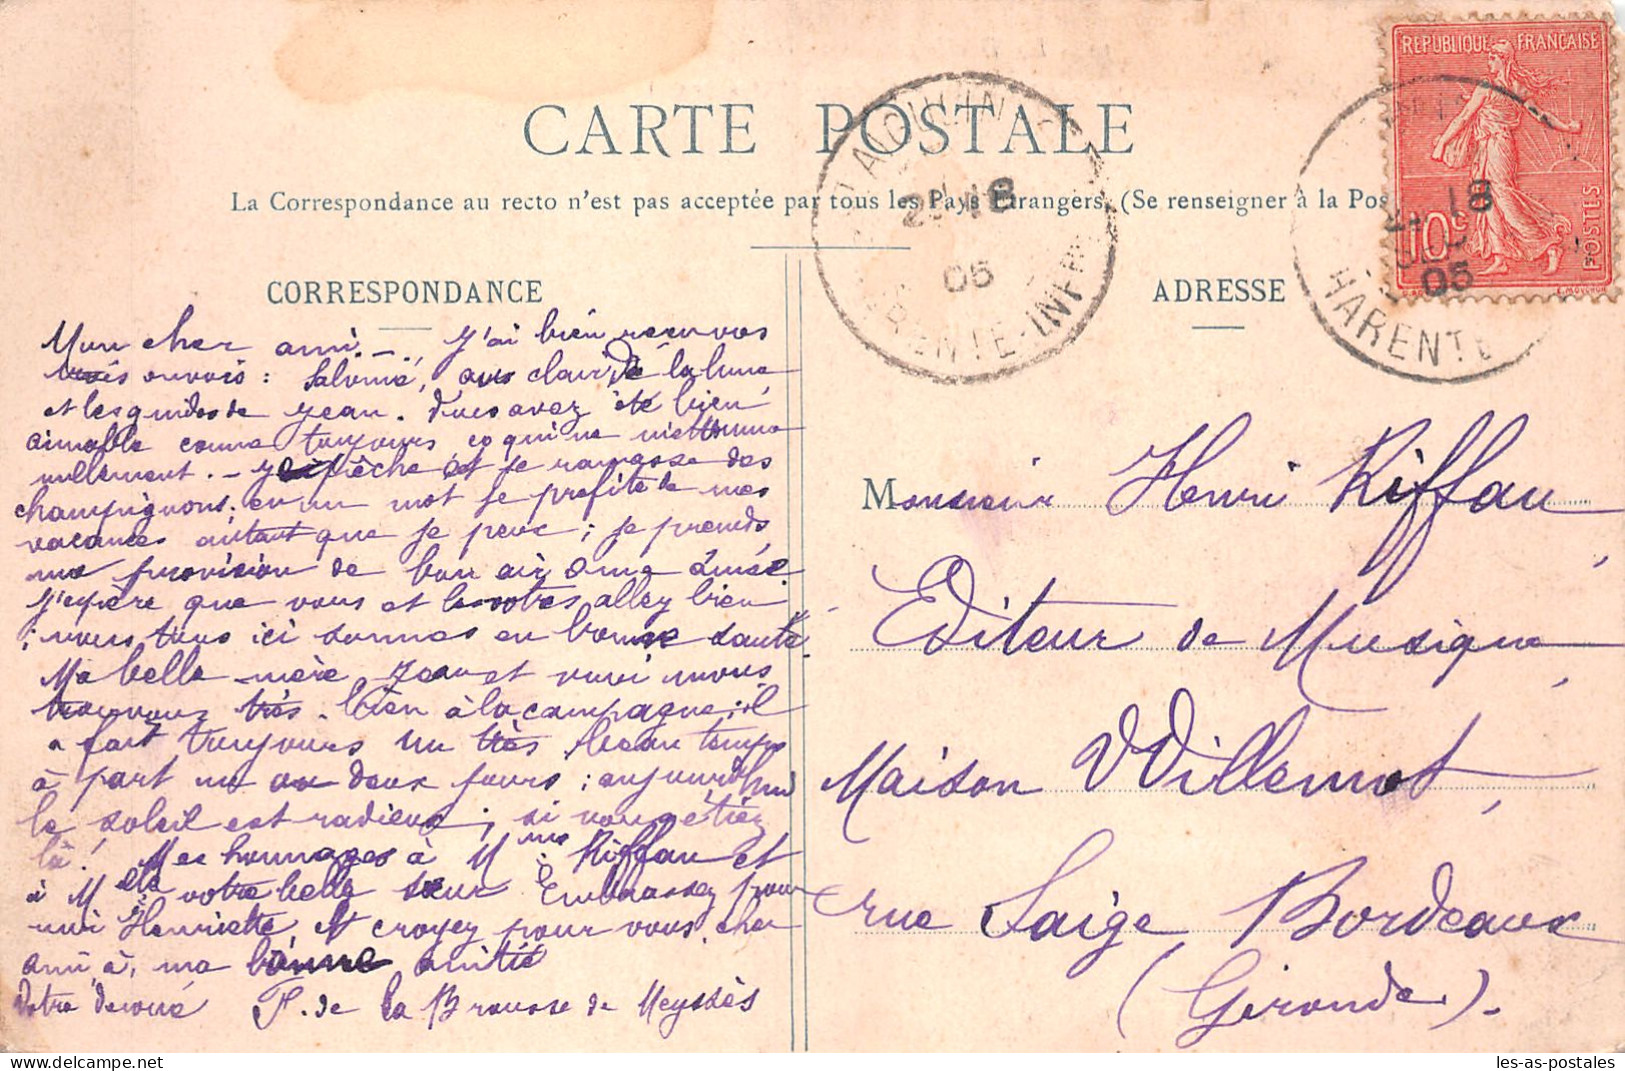 RÉPUBLIQUE FRANÇAISE
10c
POSTES
CARTE POSTALE
La Correspondance au recto n'est pas acceptée par tous les Pays Etrangers. (Se renseigner à la Pos
18
05
18
05
HARENTE
CORRESPONDANCE
ADRESSE
Mon cher ami. — J'ai bien reçu vos
envois : Salomé, au clair de la lune
et les guides de Jean. Vous avez été bien
aimable comme toujours ce qui ne m'étonne
nullement. — Je pêche et je ramasse des
champignons, en un mot je profite de mes
vacances autant que je peux ; je prends
ma provision de bon air
J'espère que vous et les votres allez bien
; nous tous ici sommes en bonne santé.
Ma belle mère Jean et moi nous
trouvons très bien à la campagne ; il
a fait toujours un très beau temps
à part un ou deux jours ; aujourd'hui
le soleil est radieux ; si vous étiez
là ! Mes hommages à Mme Riffau et
à Melle votre belle sœur Embrassez pour
moi Henriette et croyez pour vous, cher
ami à, ma bonne amitié
Votre dévoué F. de la Brousse de Meyssès
Monsieur Henri Riffau,
Editeur de Musique,
Maison Willemot,
rue Saige Bordeaux
(Gironde).
les-as-postales